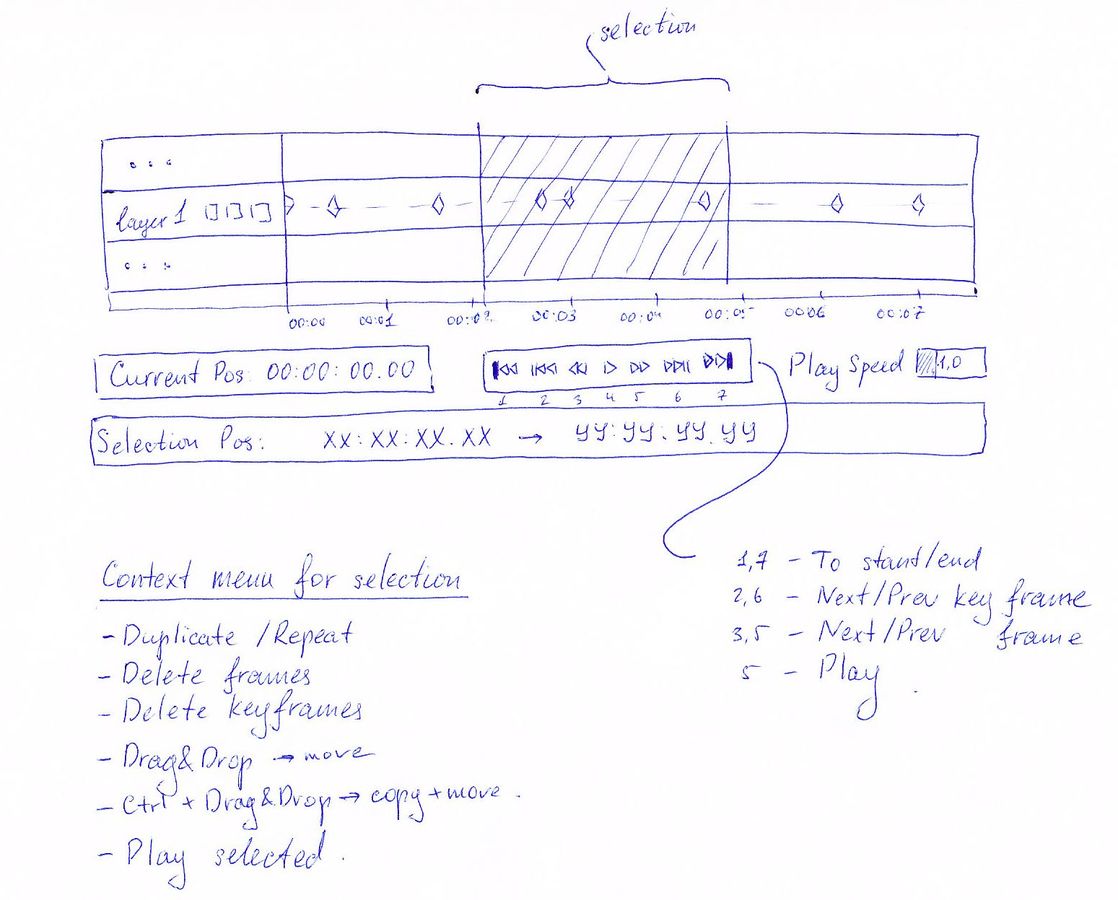 selection
layer 1
00:00 00:01 00:02 00:03 00:04 00:05 00:06 00:07
Current Pos: 00:00:00.00
Play Speed 1,0
1 2 3 4 5 6 7
Selection Pos: XX:XX:XX.XX → YY:YY:YY.YY
Context menu for selection
- Duplicate / Repeat
- Delete frames
- Delete keyframes
- Drag&Drop → move
- Ctrl + Drag&Drop → copy + move.
- Play selected.
1,7 - To stand/end
2,6 - Next/Prev key frame
3,5 - Next/Prev frame
5 - Play